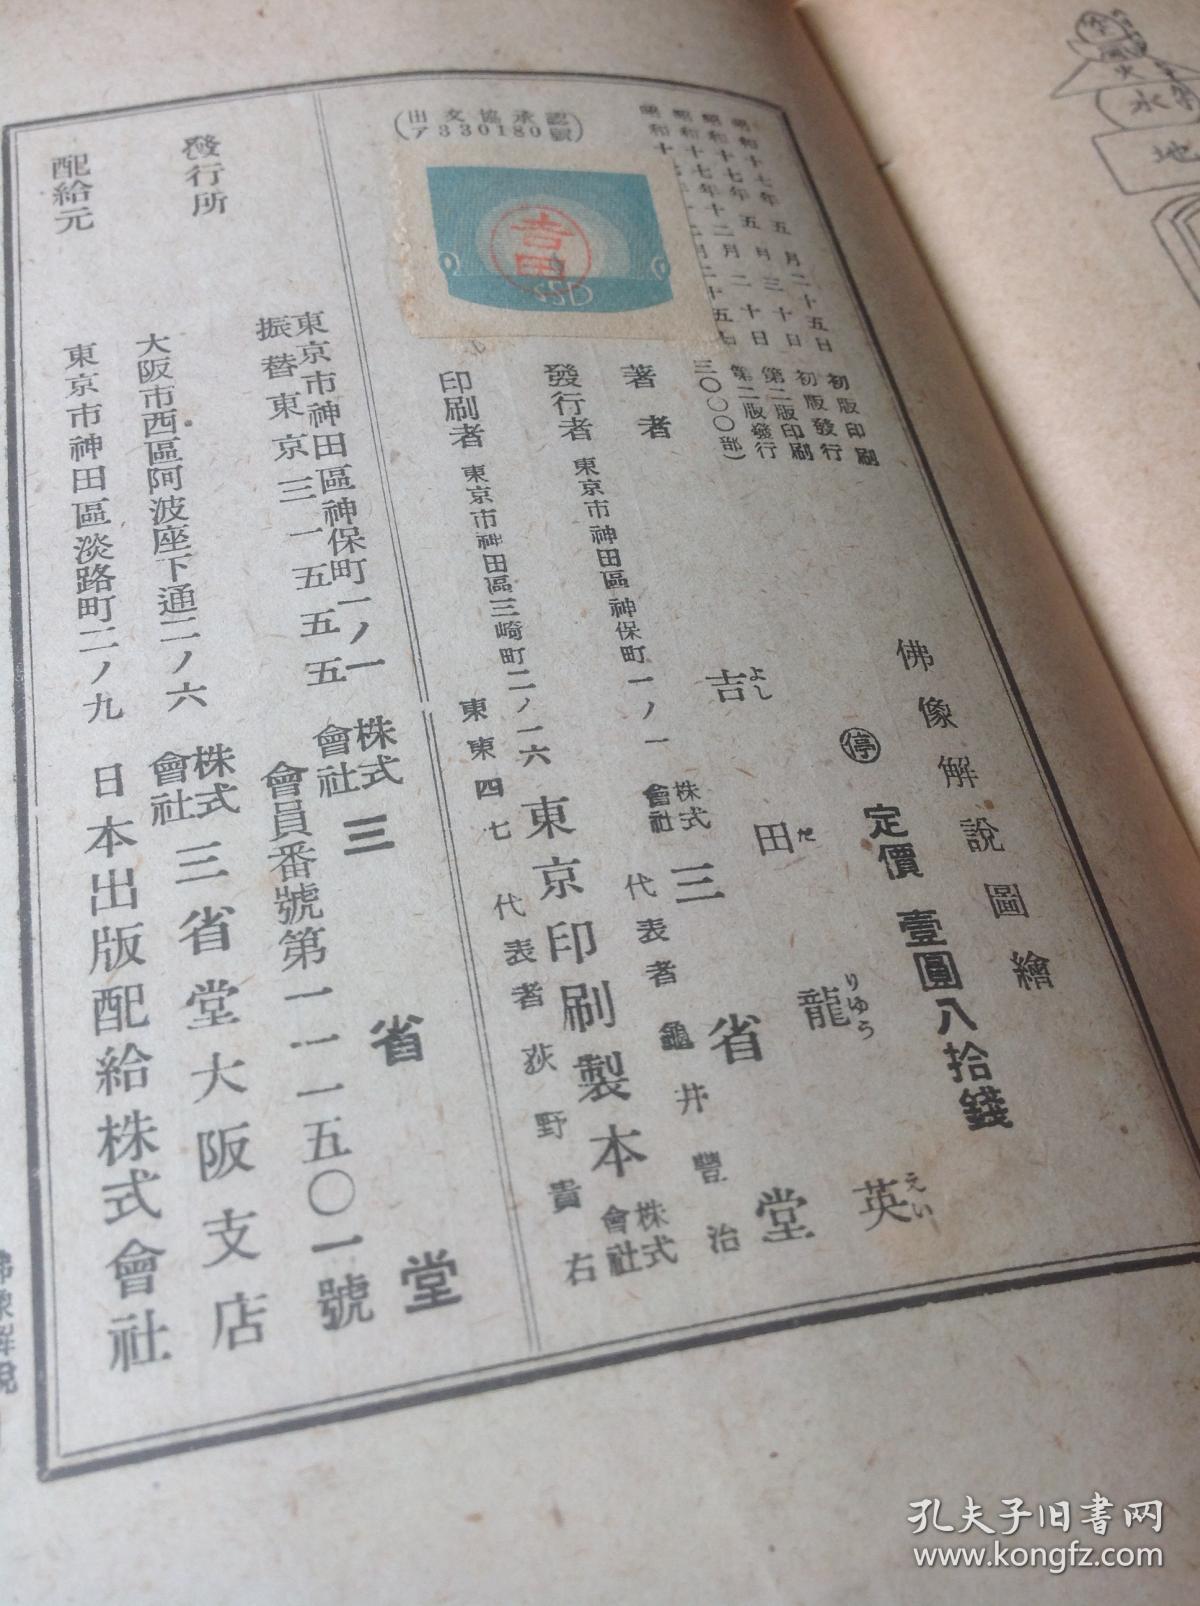 佛像解說圖繪
昭和十七年五月二十五日 初版印刷
昭和十七年五月三十日 初版發行
昭和十七年十二月二十日 第二版印刷
第二版發行
三〇〇〇部)
(出文協承認
ア330180號)
吉田
SSD
㊡ 定價 壹圓八拾錢
著者 吉田龍英
よし だ りゆう えい
發行者 東京市神田區神保町一ノ一 株式會社 三省堂
代表者 龜井豐治
印刷者 東京市神田區三崎町二ノ一六 東京印刷製本株式會社
東東四七 代表者 荻野貴右
發行所 東京市神田區神保町一ノ一 株式會社 三省堂
振替東京三一五五五 會員番號第一一一五〇一號
大阪市西區阿波座下通二ノ六 株式會社 三省堂大阪支店
配給元 東京市神田區淡路町二ノ九 日本出版配給株式會社
佛像解說
地
孔夫子旧书网
www.kongfz.com